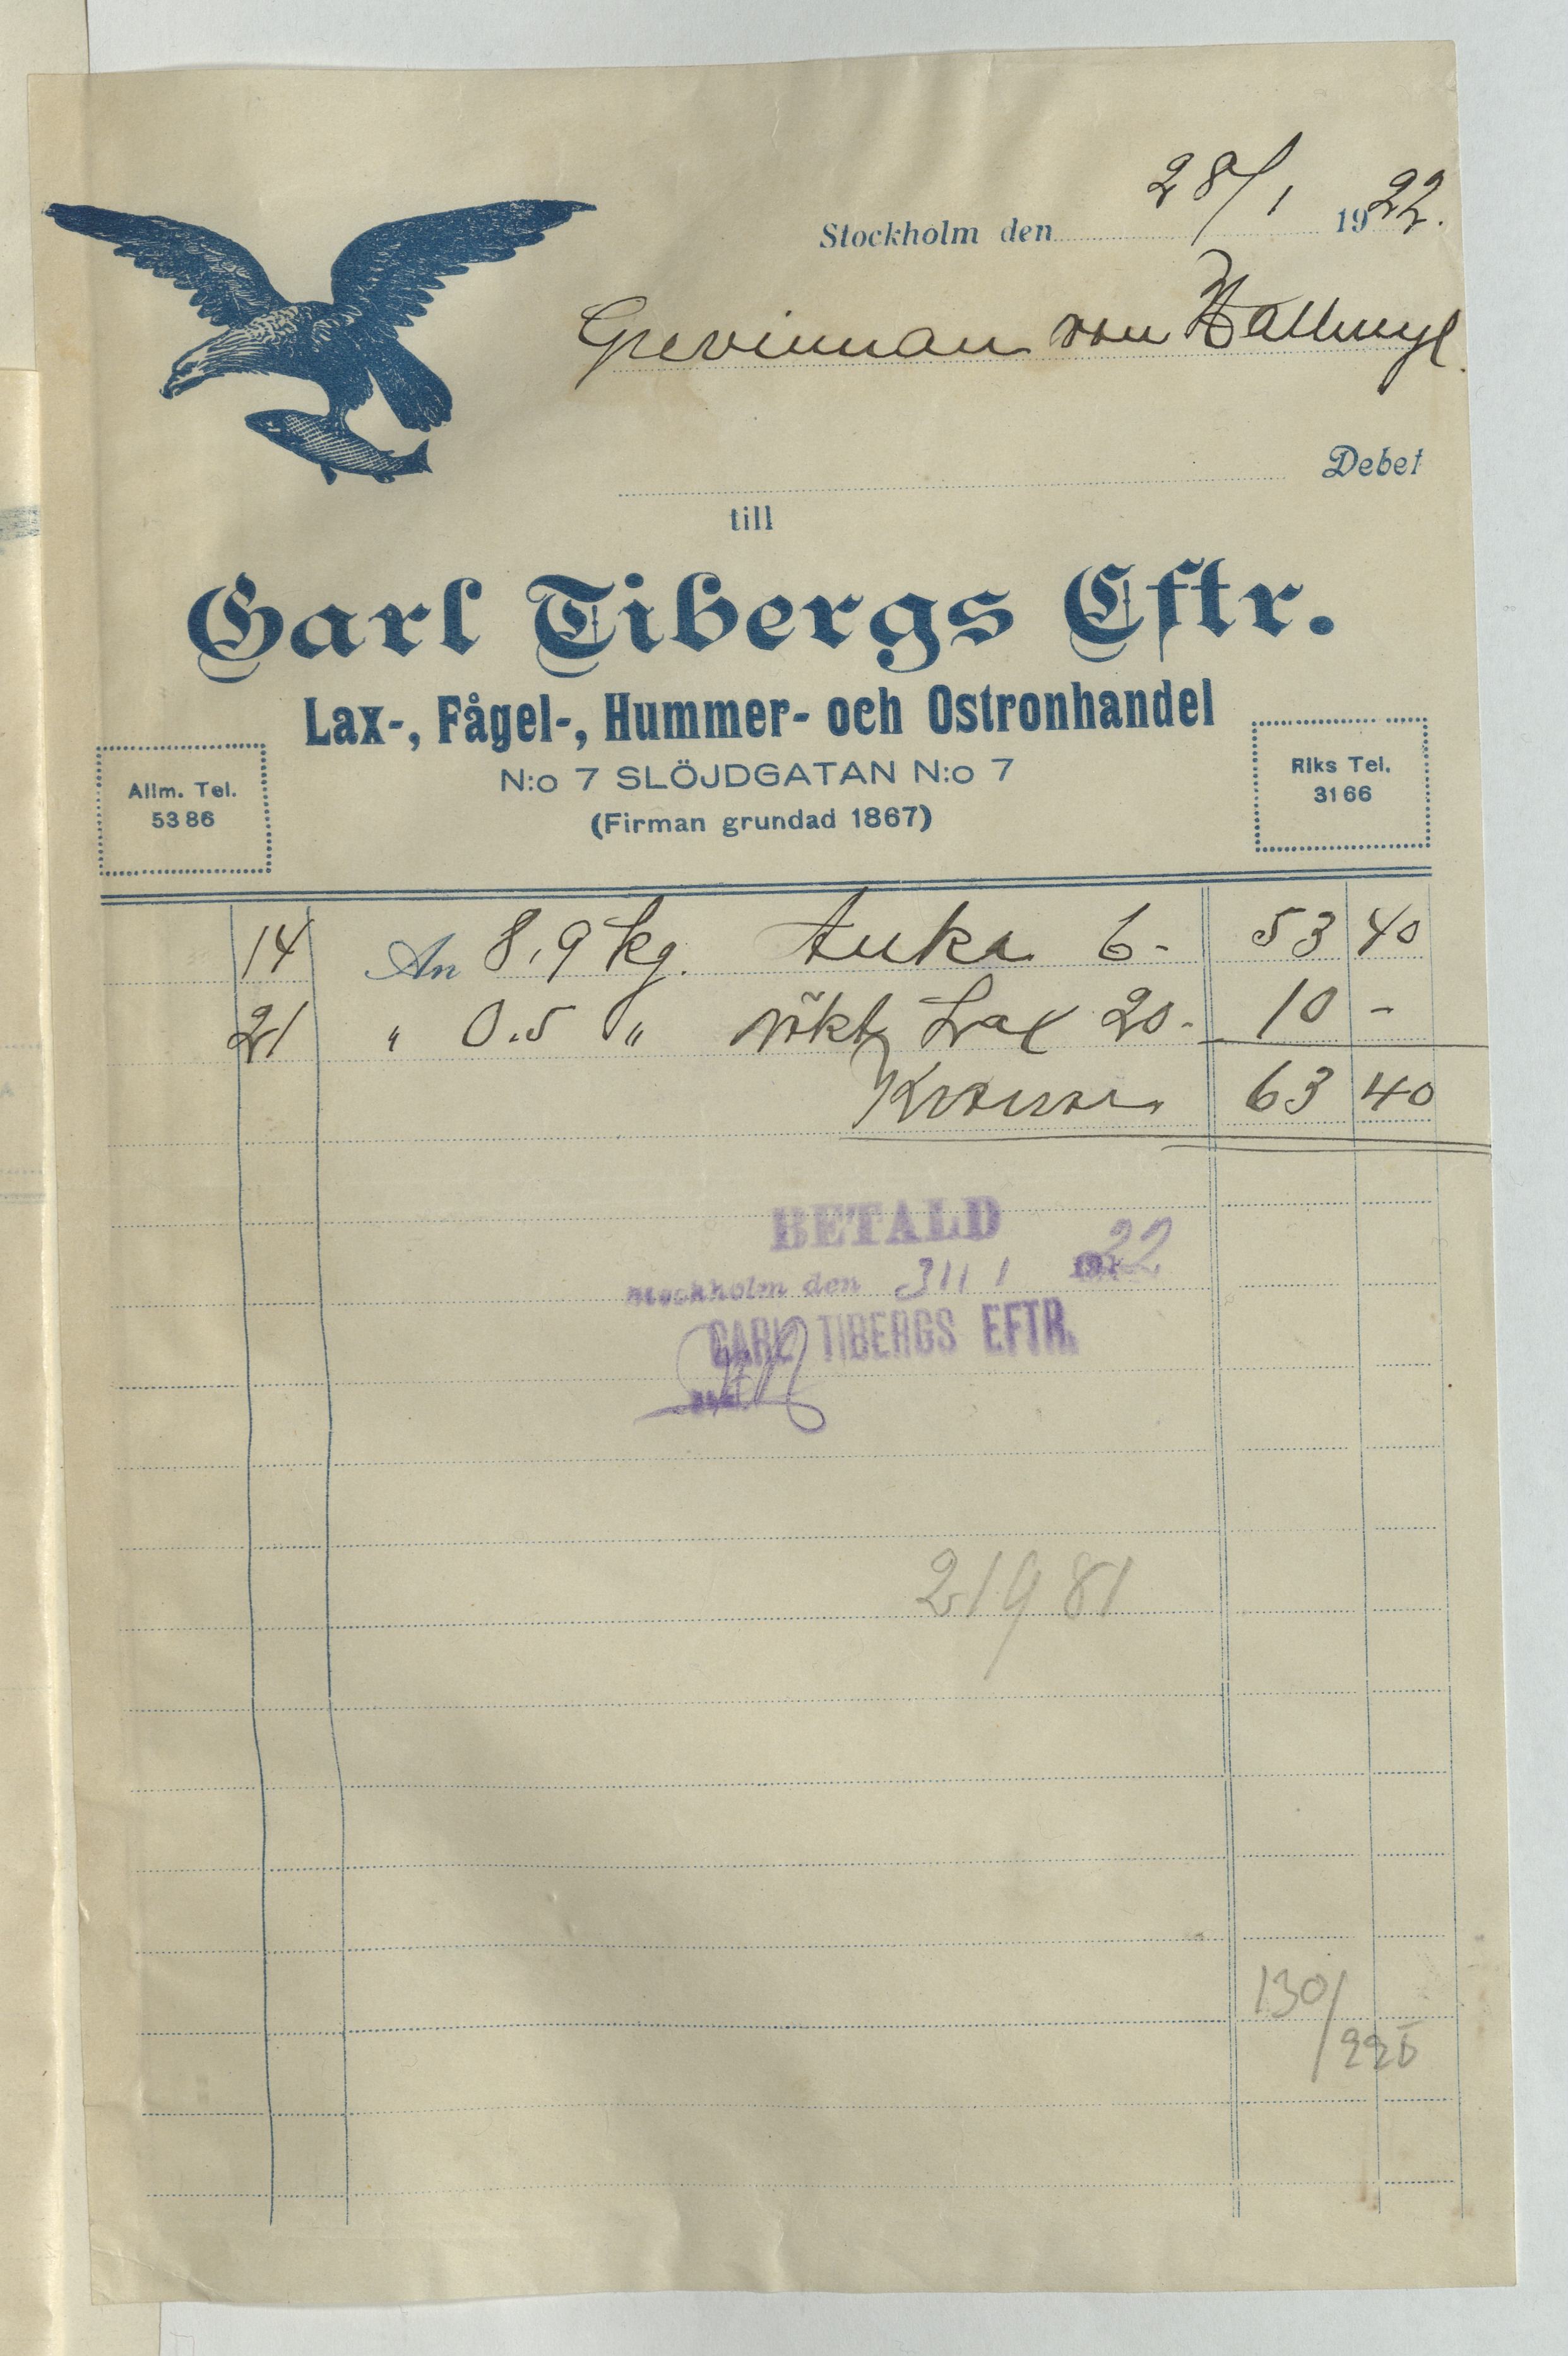 Stockholm den 28/1 1922.
Grevinnan von Hallwyl.
Debet
till
Carl Tibergs Eftr.
Lax-, Fågel-, Hummer- och Ostronhandel
N:o 7 SLÖJDGATAN N:o 7
(Firman grundad 1867)
Allm. Tel.
53 86
Riks Tel.
31 66
14 An 8,9 kg. 6- 53 40
21 " 0.5 " rökt Lax 20.- 10 -
Kronor 63 40
BETALD
Stockholm den 31/1 1922
CARL TIBERGS EFTR.
21981
130/
226